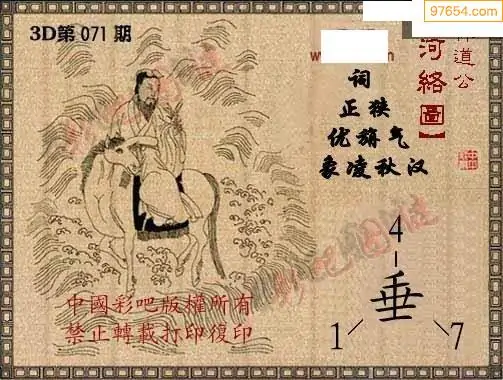 97654.com
3D第 071 期
河絡圖】
道公
词
正狭
优旃气
象凌秋汉
4
垂
1 7
中國彩吧版權所有
禁止轉載打印復印